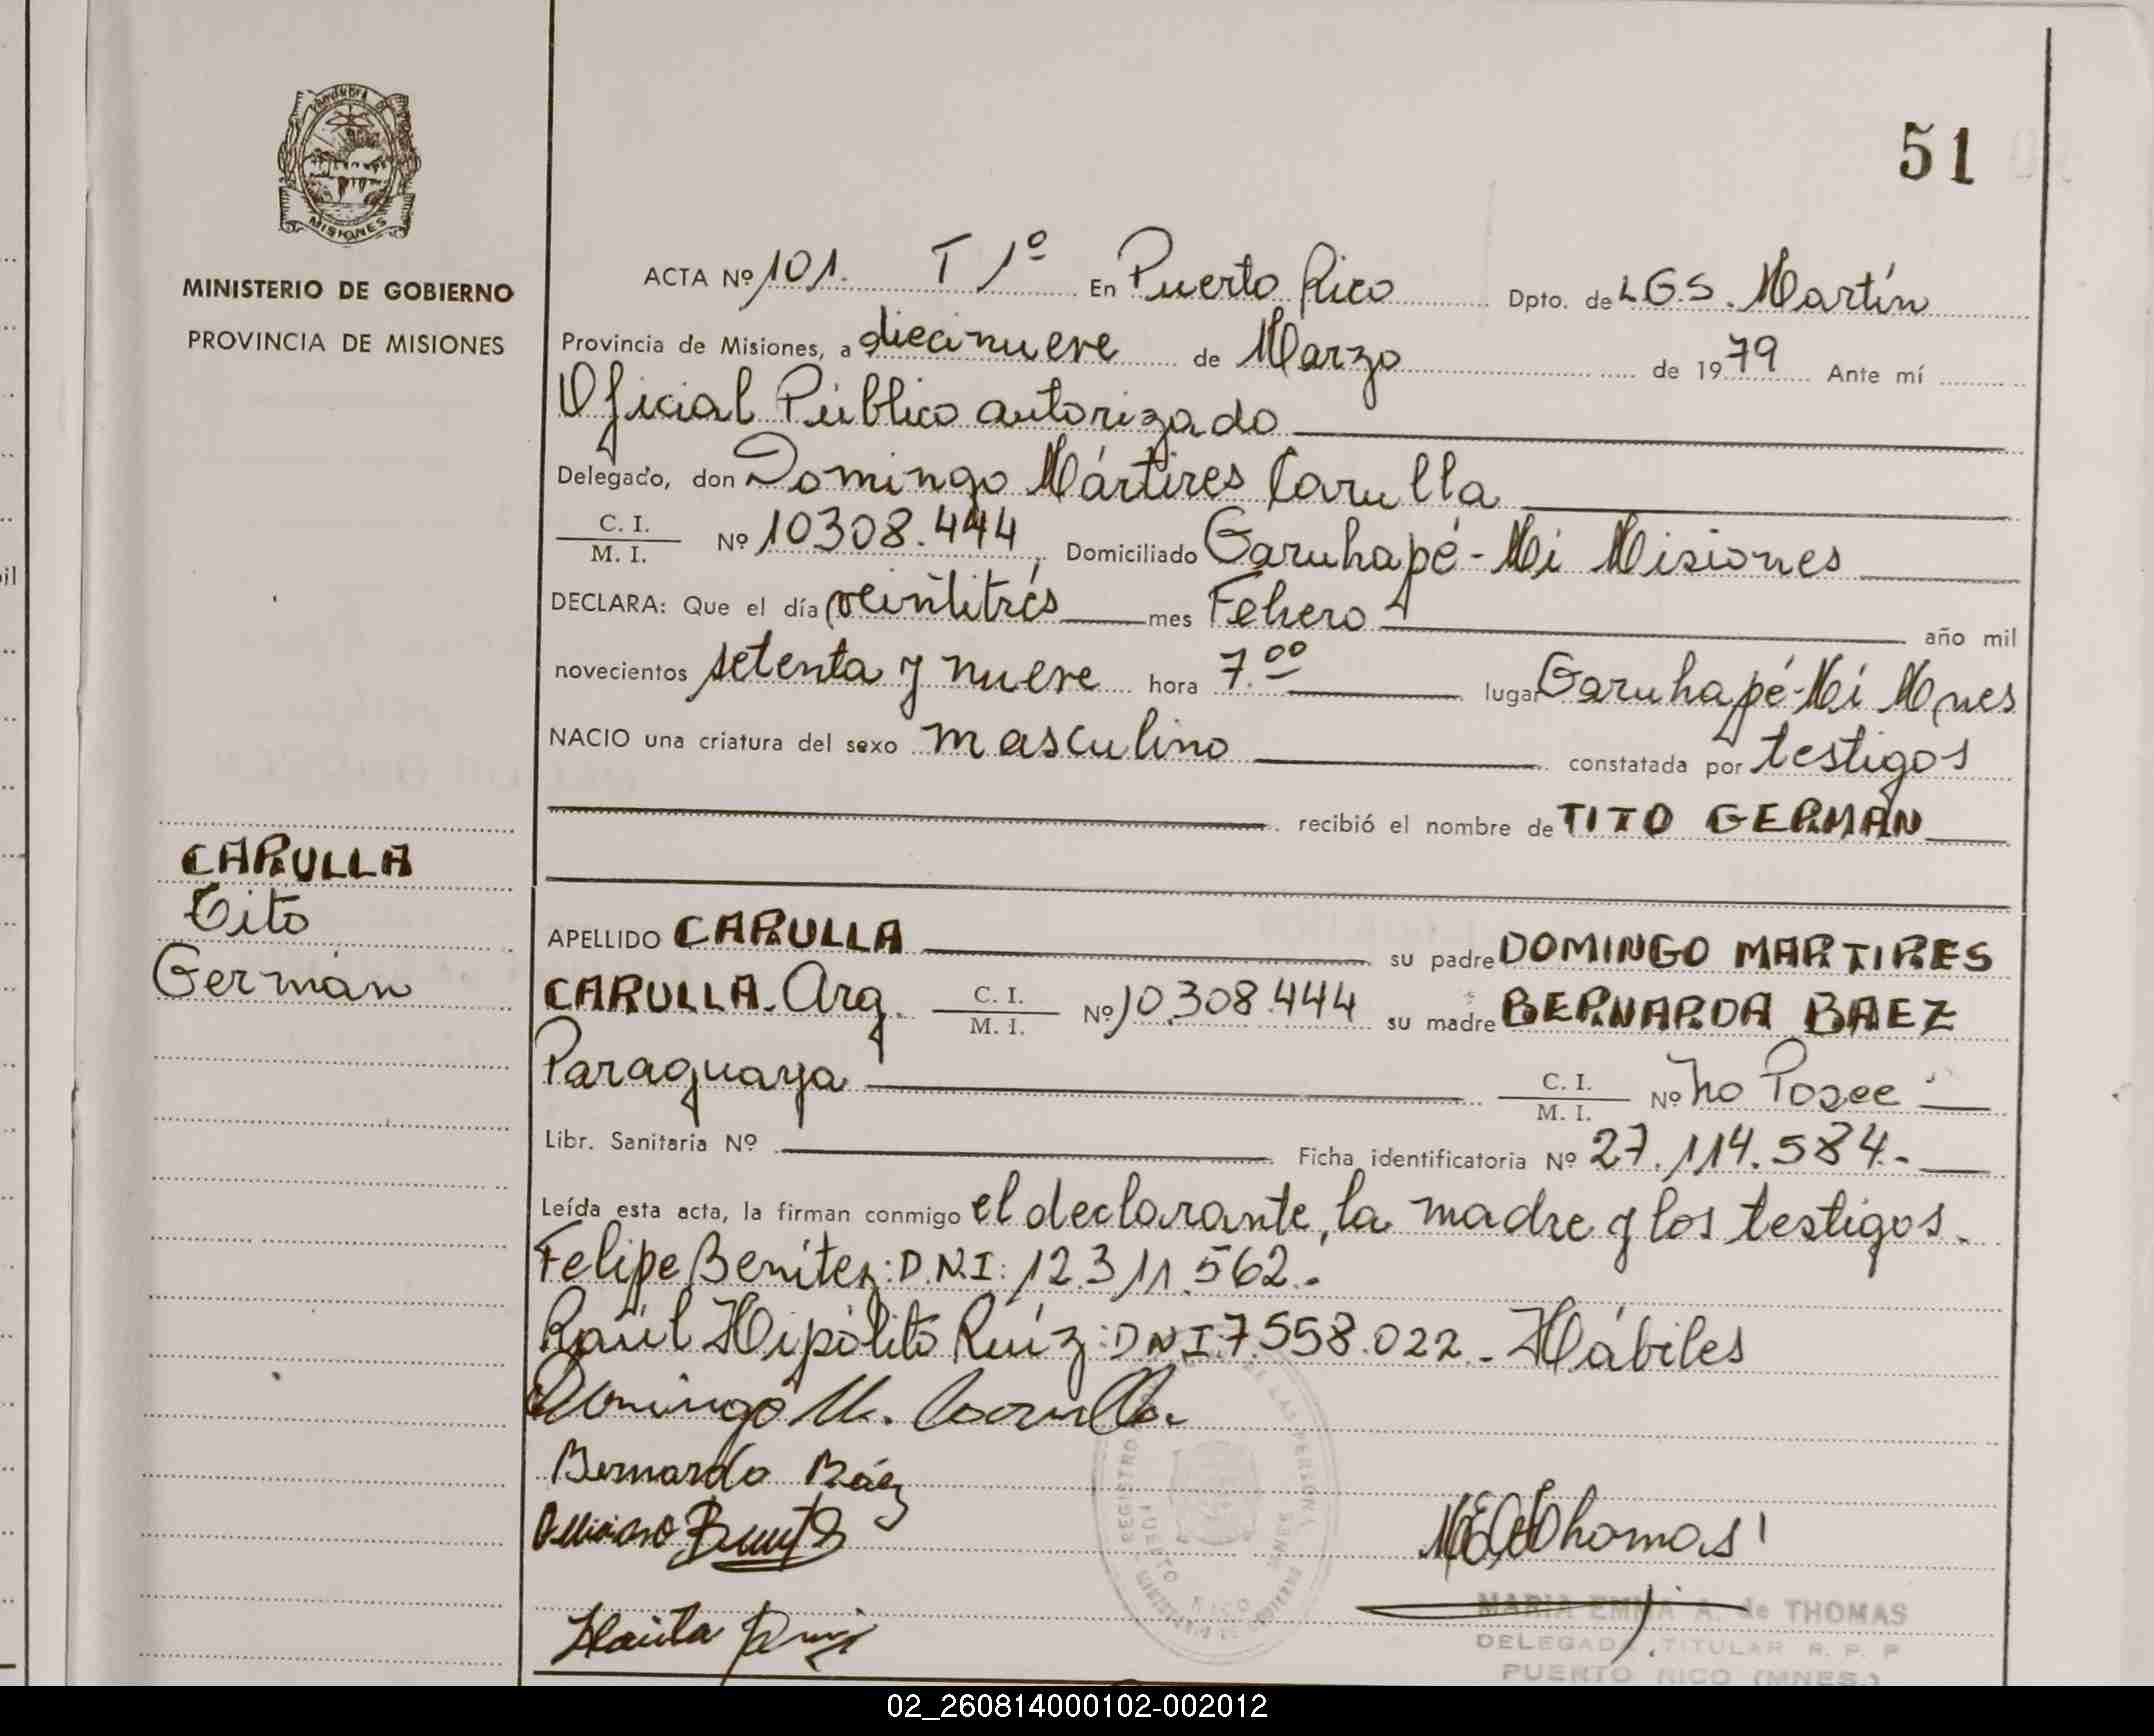 51
MISIONES
MINISTERIO DE GOBIERNO
PROVINCIA DE MISIONES
CARULLA
Tito
Germán
ACTA Nº 101. T 1º En Puerto Rico Dpto. de L.G.S. Martín
Provincia de Misiones, a diecinueve de Marzo de 1979 Ante mí
Oficial Público autorizado
Delegado, don Domingo Mártires Carulla
C. I. / M. I. Nº 10308.444, Domiciliado Garuhapé-Mi Misiones
DECLARA: Que el día veintitrés mes Febero año mil
novecientos setenta y nueve hora 7.00 lugar Garuhapé-Mi Mnes
NACIO una criatura del sexo masculino constatada por testigos
recibió el nombre de TITO GERMAN
APELLIDO CARULLA su padre DOMINGO MARTIRES
CARULLA. Arg. C. I. / M. I. Nº 10.308.444 su madre BERNARDA BAEZ
Paraguaya C. I. / M. I. Nº No Posee
Libr. Sanitaria Nº Ficha identificatoria Nº 27.114.584.-
Leída esta acta, la firman conmigo el declarante, la madre y los testigos.
Felipe Benítez: D.N.I: 12.311.562.-
Raúl Hipólito Ruíz: DNI. 7.558.022.- Hábiles
Domingo M. Carulla
Bernarda Báez
MEAdThomas
MARIA EMMA A. de THOMAS
DELEGADA TITULAR R. P. P
PUERTO RICO (MNES.)
02_260814000102-002012